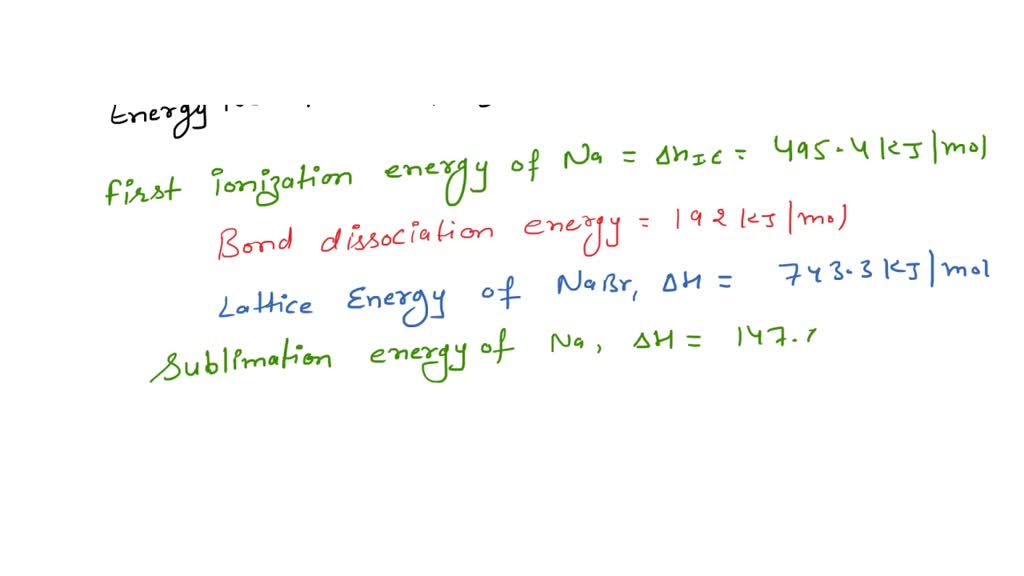 Energy
first ionization energy of Na = ΔH IE = 495.4 KJ/mol
Bond dissociation energy = 192 KJ/mol
Lattice Energy of NaBr, ΔH = 743.3 KJ/mol
Sublimation energy of Na, ΔH = 147.